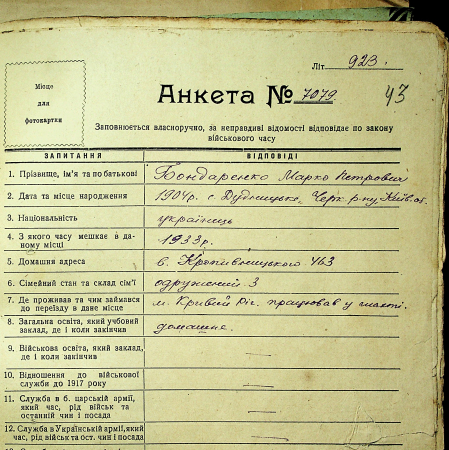 Літ. 923.
Місце
для
фотокартки
Анкета № 7079. 43
Заповнюється власноручно, за неправдиві відомості відповідає по закону
військового часу
ЗАПИТАННЯ ВІДПОВІДІ
1. Прізвище, ім'я та по батькові Бондаренко Марко Петрович
2. Дата та місце народження 1904р. с. Черк. р-ну Київ. об.
3. Національність українець
4. З якого часу мешкає в да-
ному місці 1933р.
5. Домашня адреса в. Кропивницького 463
6. Сімейний стан та склад сім'ї одружений 3
7. Де проживав та чим займався
до переїзду в дане місце м. Кривий Ріг. працював у шахті.
8. Загальна освіта, який учбовий
заклад, де і коли закінчив домашнє.
9. Військова освіта, який заклад,
де і коли закінчив —
10. Відношення до військової
служби до 1917 року —
11. Служба в б. царській армії,
який час, рід військ та
останній чин і посада —
12. Служба в Українській армії, який
час, рід військ та ост. чин і посада —